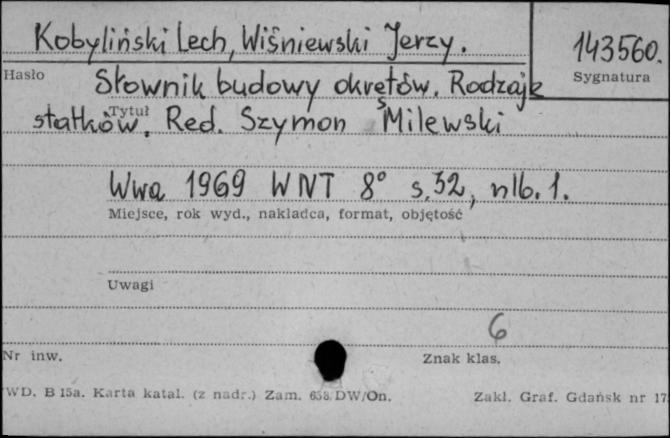 Kobyliński Lech, Wiśniewski Jerzy.
143560.
Hasło
Sygnatura
Słownik budowy okrętów. Rodzaje
Tytuł
statków. Red. Szymon Milewski
Wwa 1969 WNT 8° s. 32, nlb. 1.
Miejsce, rok wyd., nakładca, format, objętość
Uwagi
6
Nr inw.
Znak klas.
WD. B 15a. Karta katal. (z nadr.) Zam. 658/DW/On.
Zakł. Graf. Gdańsk nr 17